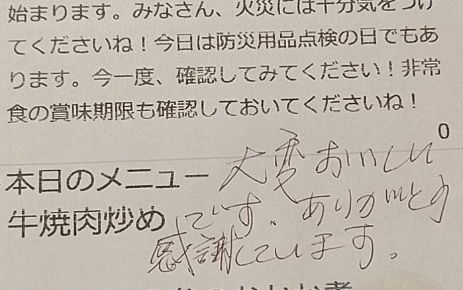 始まります。みなさん、火災には十分気をつけ
てくださいね！今日は防災用品点検の日でもあ
ります。今一度、確認してみてください！非常
食の賞味期限も確認しておいてくださいね！
0
本日のメニュー 大変おいしい
牛焼肉炒め です、ありがとう
感謝しています。